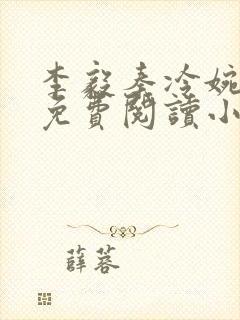 李毅奉冷婉
免費閱讀小
薛蓉